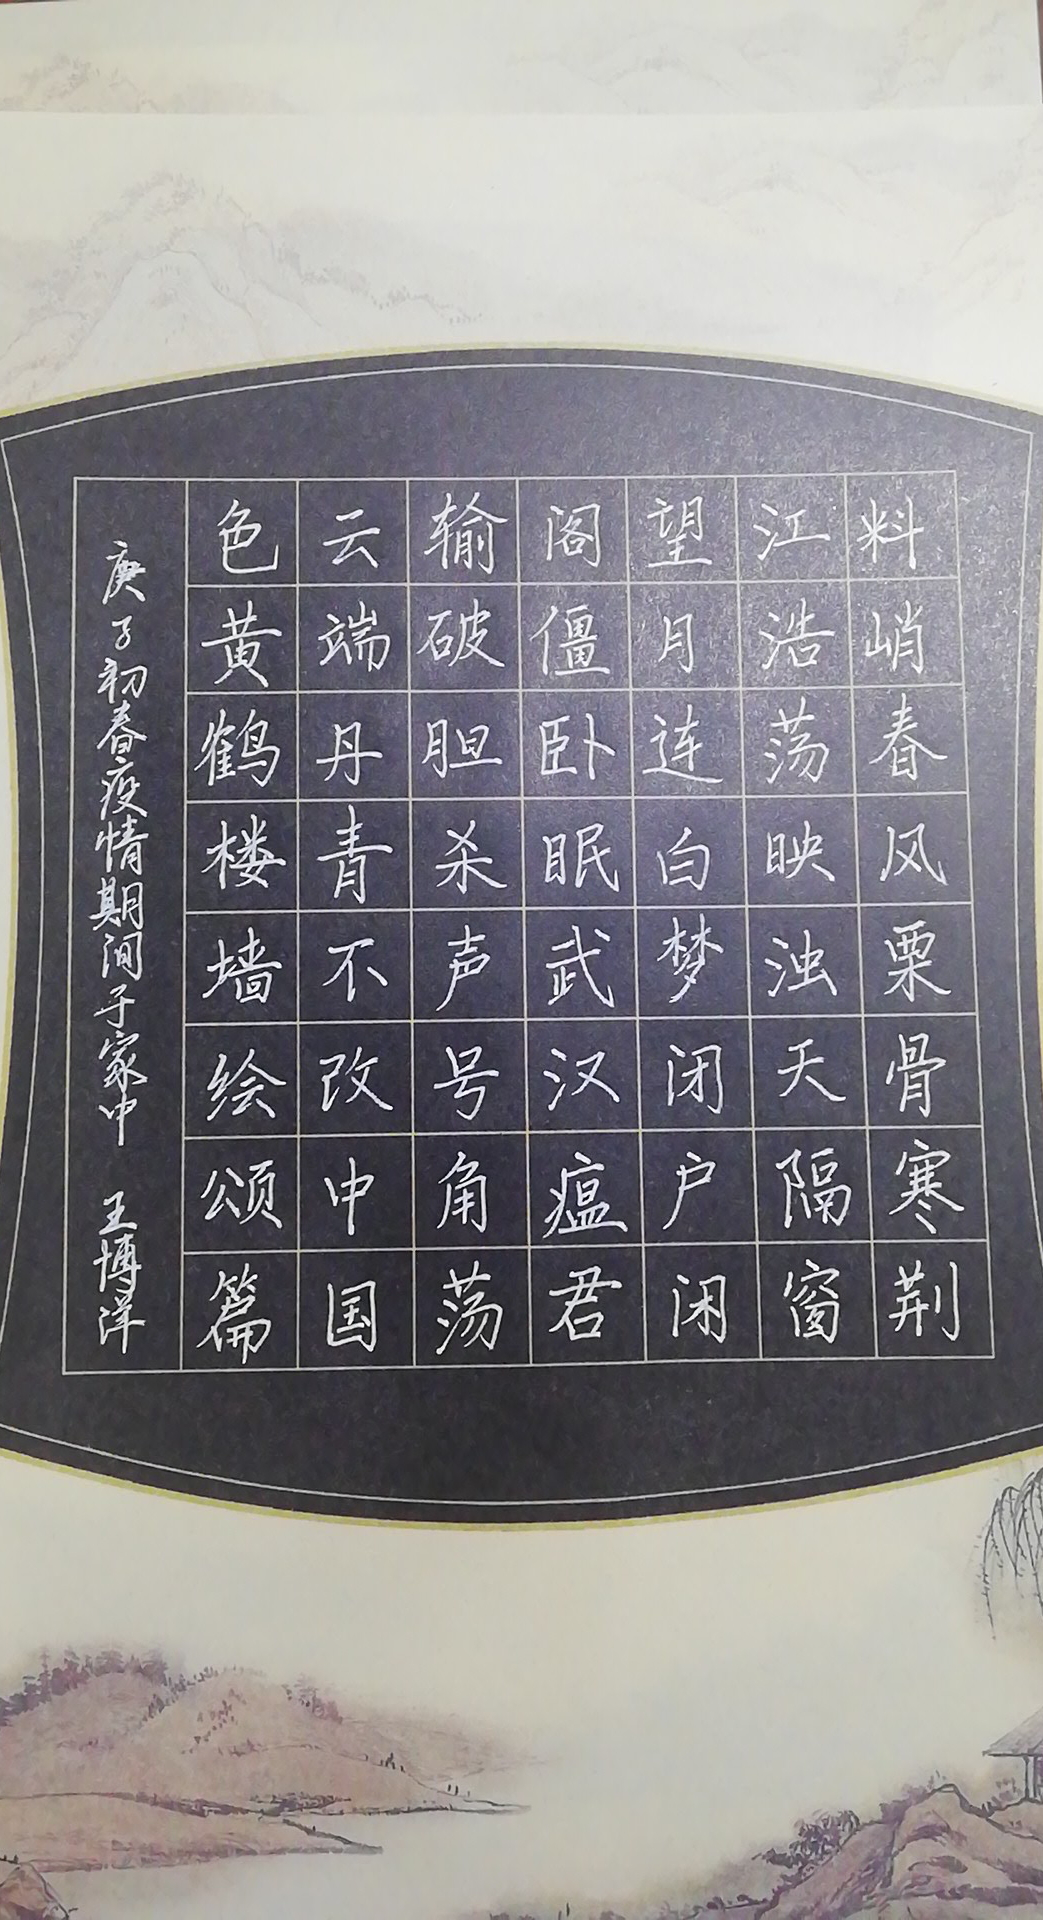 料峭春风栗骨寒荆
江浩荡映浊天隔窗
望月连白梦闭户闲
阁僵卧眠武汉瘟君
输破胆杀声号角荡
云端丹青不改中国
色黄鹤楼墙绘颂篇
庚子初春疫情期间于家中 王博洋